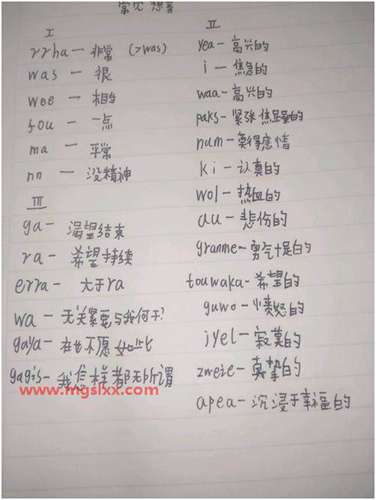 常见
I
rrha — 非常 (>was)
was — 很
wee — 相当
fou — 一点
ma — 平常
nn — 没精神
III
ga — 渴望结束
ra — 希望持续
erra — 大于ra
wa — 无关紧要与我何干?
gaya — 在也不愿如此
gagis — 我怎样都无所谓
www.mgslxx.com
II
yea - 高兴的
i - 焦急的
waa - 高兴的
paks - 紧张焦虑的
num - 莫得感情
ki - 认真的
wol - 热血的
au - 悲伤的
granme - 勇气十足的
touwaka - 希望的
guwo - 愤怒的
jyel - 寂寞的
zweie - 真挚的
apea - 沉浸于幸福的